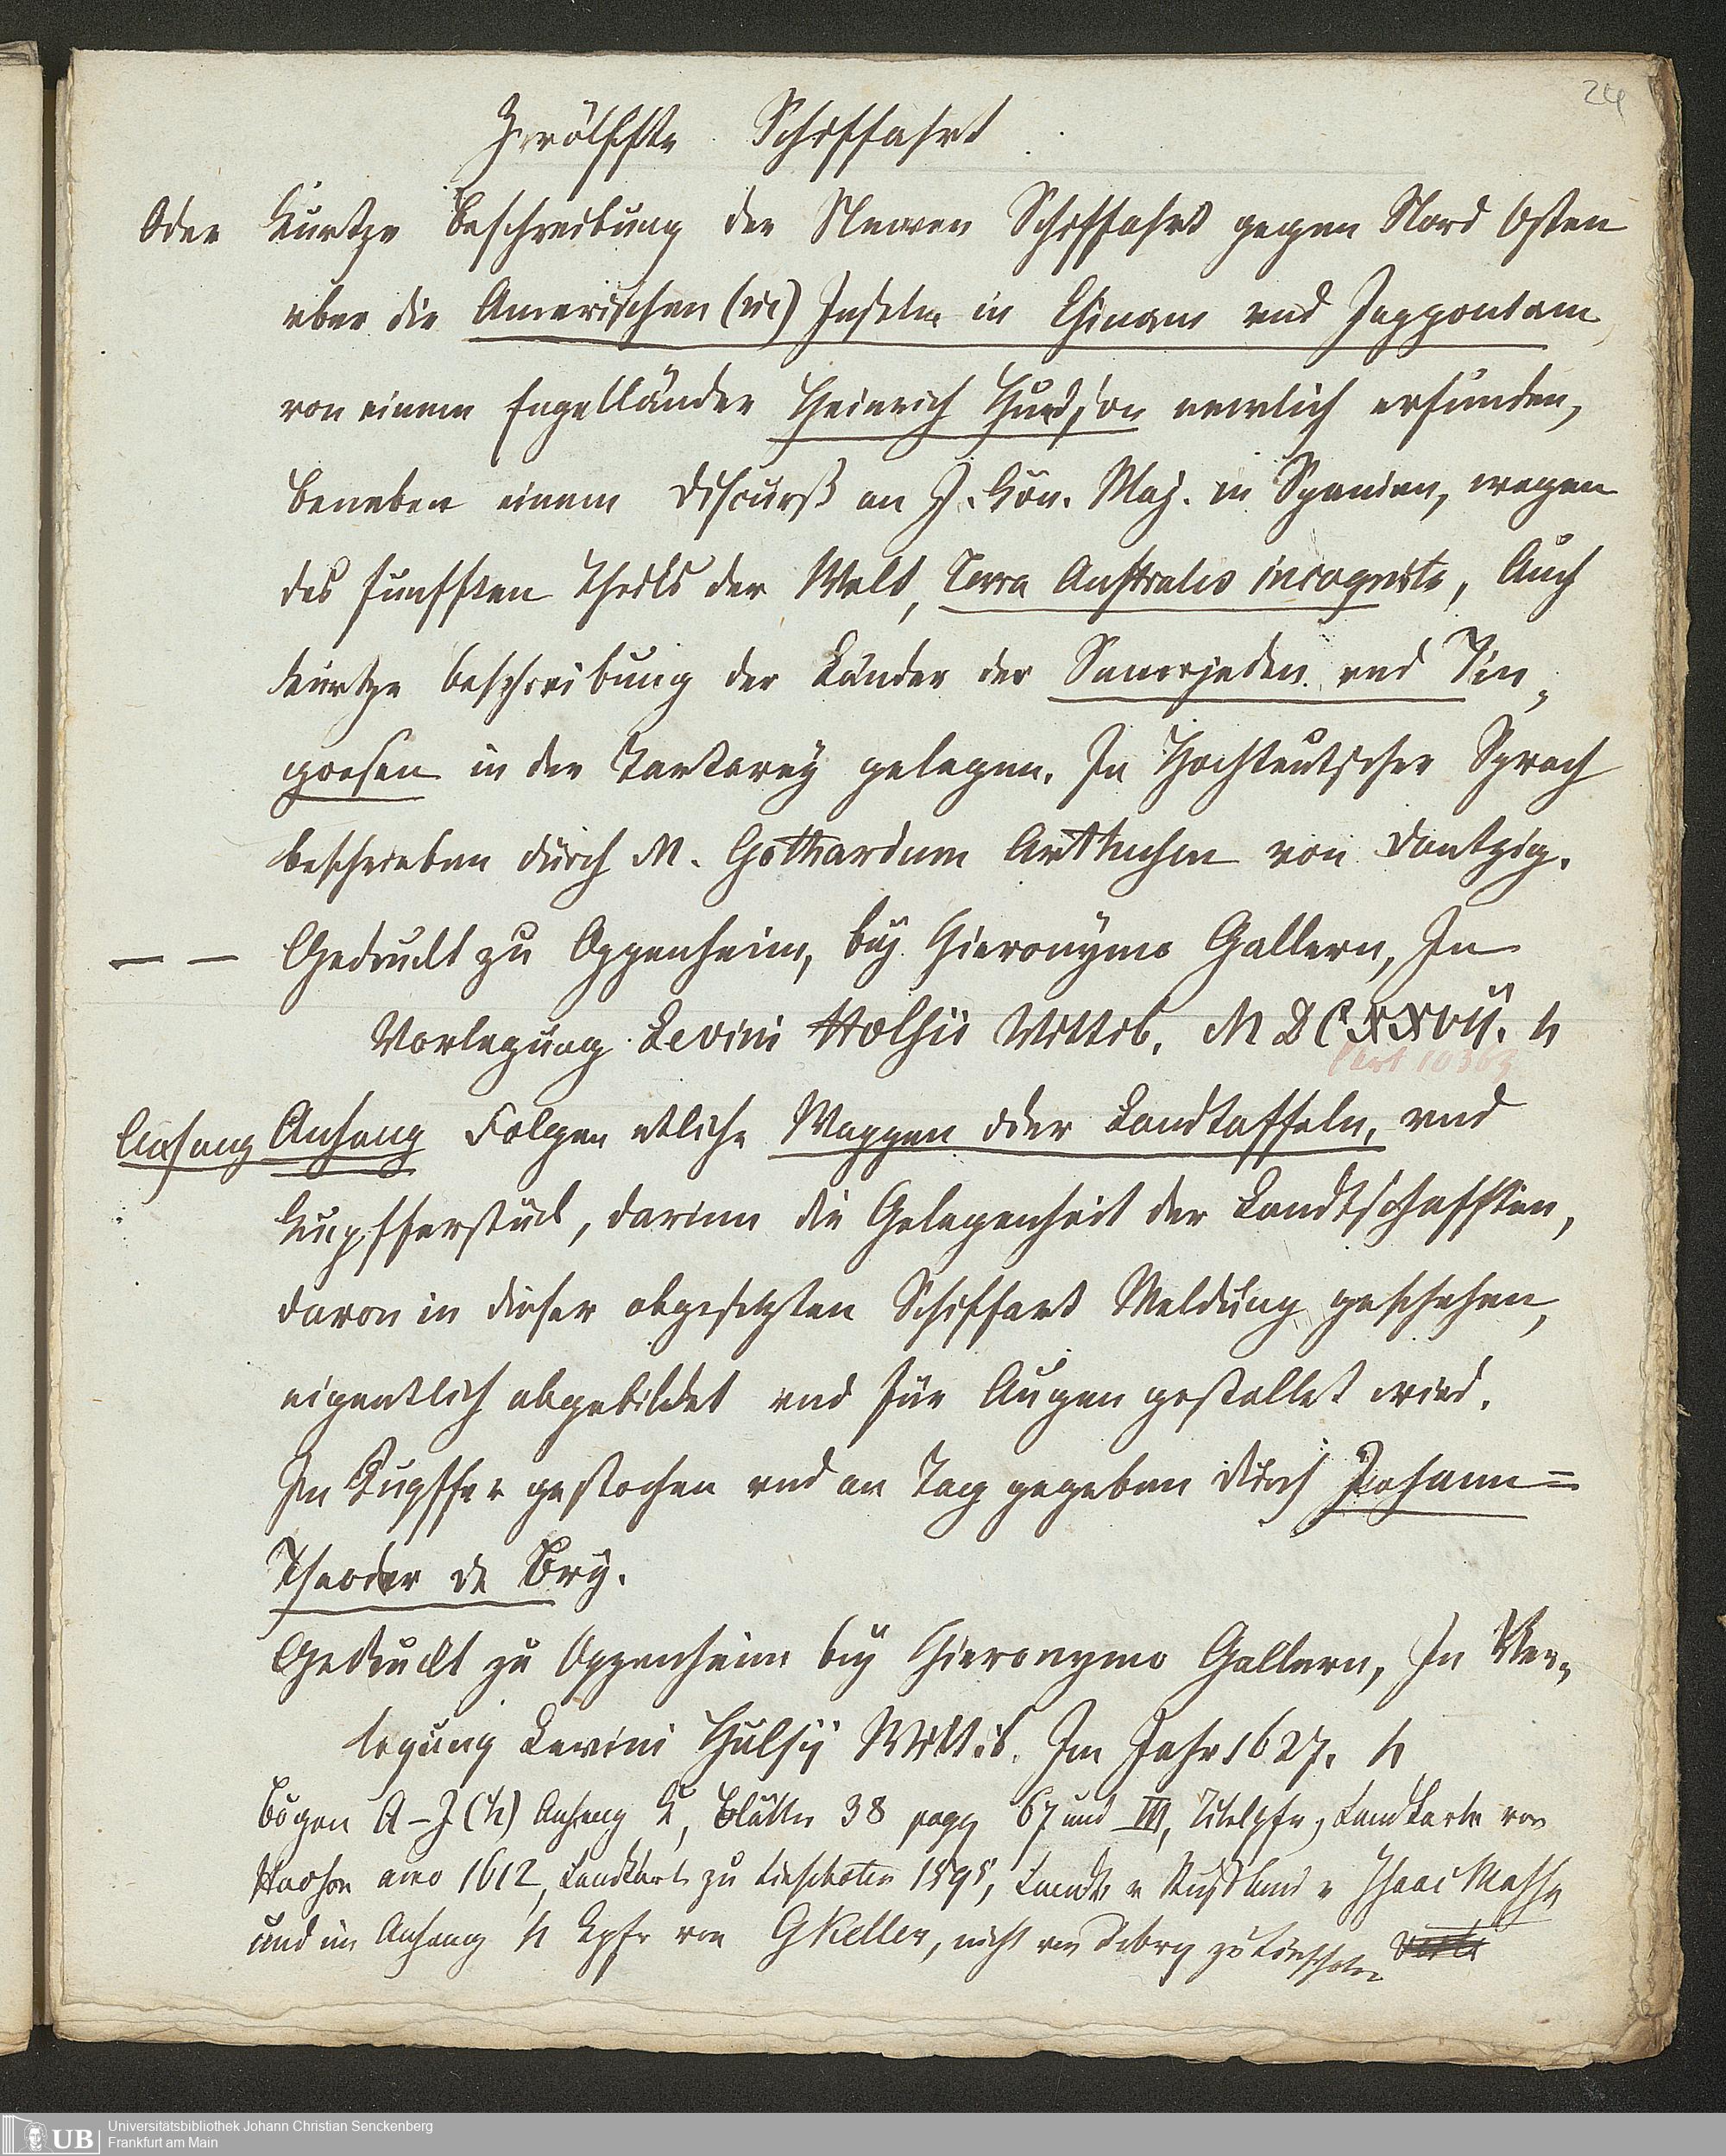 24
Zwölffte Schiffahrt
Oder Kurtze Beschreibung der Newen Schiffahrt gegen Nord Osten
vber die Amerischen (sic) Inseln in Chinam vnd Jappontam
von einem Engelländer Heinrich Hudson newlich erfunden,
beneben einem Discurß an J. Kön. Maj. in Spanien, wegen
des funfften Theils der Welt, Terra Australis incognita, Auch
kurtze beschreibung der Länder der Samojeden vnd Tin„
goesen in der Tartarey gelegen. In Hochteutscher Sprach
beschrieben durch M. Gothardum Arthusen von Dantzig.
— — Gedruckt zu Oppenheim, bey Hieronymo Gallern, In
Vorlegung Levini Holsii Wittib. MDCXXVII. 4
10363
Anhang Anhang Folgen etliche Mappen oder Landtaffeln, vnd
Kupfferstück, darinn die Gelegenheit der Landtschafften,
davon in dieser abgesetzten Schiffart Meldung geschehen,
eigentlich abgebildet vnd für Augen gestellet wird.
In Kupffer gestochen vnd an Tag gegeben durch Johann=
Theodor de Bry.
Gedruckt zu Oppenheim bey Hieronymo Gallern, In Ver„
legung Levini Hulsij Wittib. Im Jahr 1627. 4
Bögen A–J (4) Anhang K, Blätter 38 pagg 67 und III, Titelpfr, Landkarte von
1612, Landkarte zu Linschoten 1595, Landk v Rußland v Isaac Massa
und im Anhang 4 Kpfr von GKeller, nicht von Debry zu Linschoten
Universitätsbibliothek Johann Christian Senckenberg
Frankfurt am Main
UB